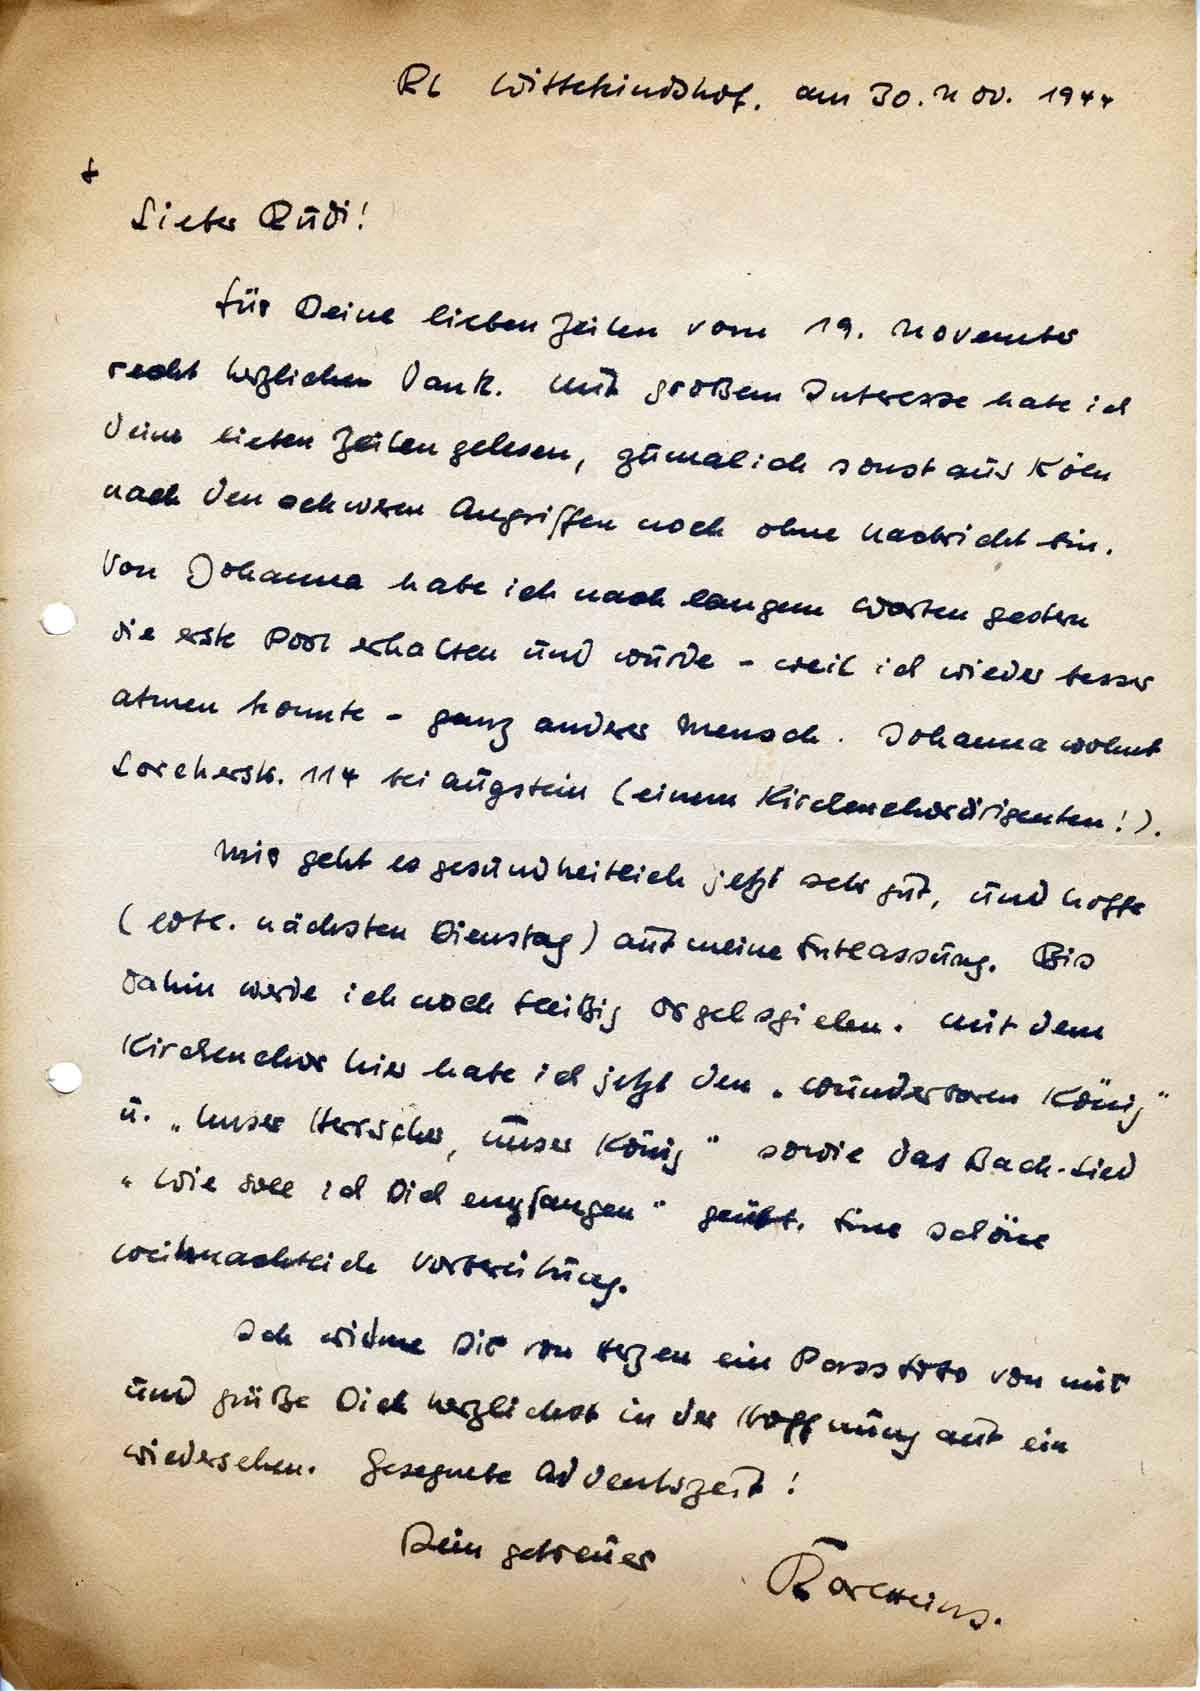 RL Wittekindshof, am 30. Nov. 1944
+
Lieber Rudi!
Für Deine lieben Zeilen vom 19. November
recht herzlichen Dank. Mit großem Interesse habe ich
Deine lieben Zeilen gelesen, zumal ich sonst aus Köln
nach den schweren Angriffen noch ohne Nachricht bin.
Von Johanna habe ich nach langem Warten gestern
die erste Post erhalten und wurde – weil ich wieder besser
atmen konnte – ganz anderer Mensch. Johanna wohnt
Lorcherstr. 114 bei Augstein (einem Kirchenchordirigenten!).
Mir geht es gesundheitlich jetzt sehr gut, und hoffe
(evtl. nächsten Dienstag) auf meine Entlassung. Bis
dahin werde ich noch fleißig Orgel spielen. Mit dem
Kirchenchor hier habe ich jetzt den „Wunderbaren König"
u. „Unser Herrscher, unser König" sowie das Bach-Lied
„Wie soll ich Dich empfangen" geübt. Eine schöne
weihnachtliche Vorbereitung.
Ich widme Dir von Herzen ein Passfoto von mir
und grüße Dich herzlichst in der Hoffnung auf ein
Wiedersehen. Gesegnete Adventszeit!
Dein getreuer Karlheinz.